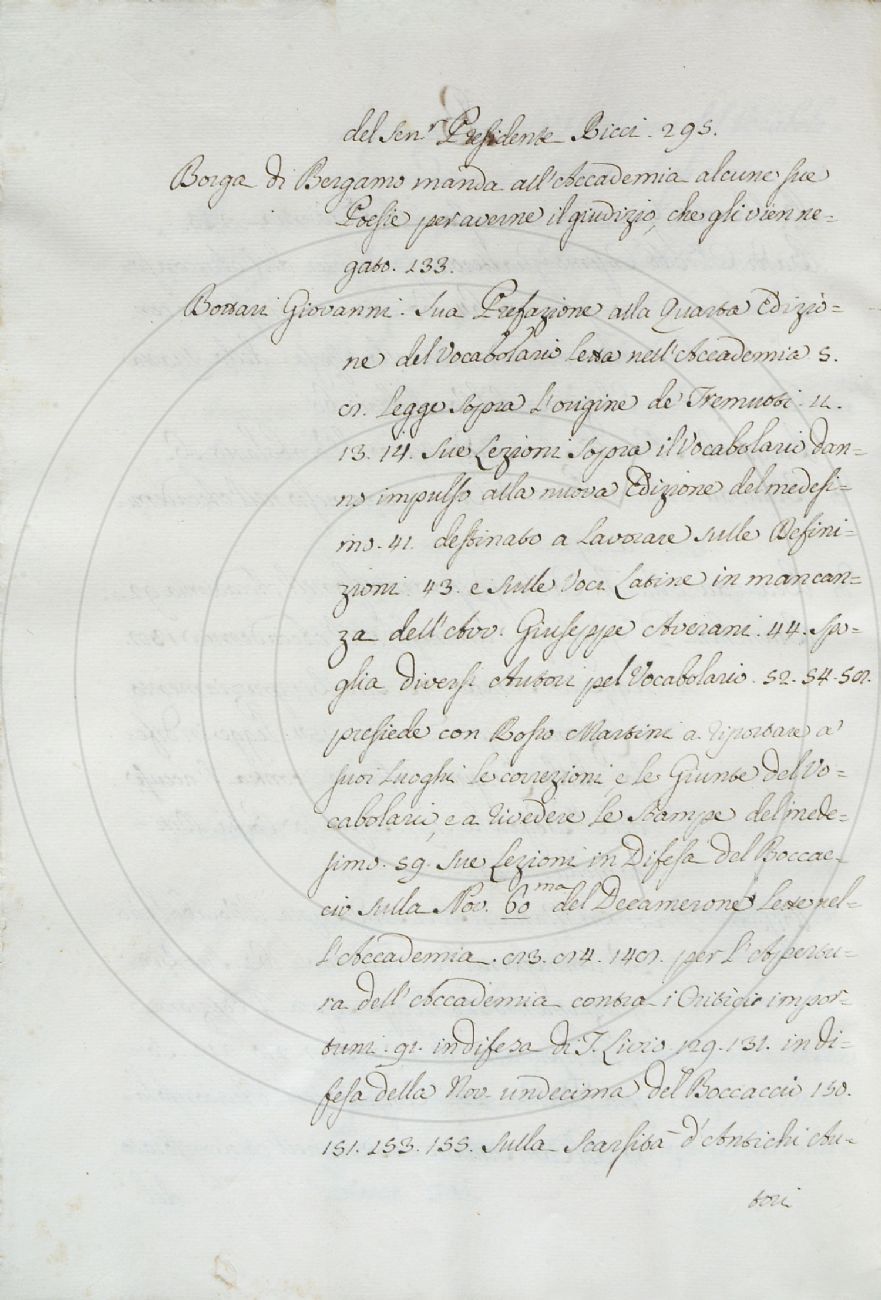 del Sen.r Presidente Ricci. 295.
Borga di Bergamo manda all'Accademia alcune sue
Poesie per averne il giudizio, che gli vien ne=
gato. 133.
Bottari Giovanni. Sua Prefazione alla Quarta Edizio=
ne del Vocabolario Letta nell'Accademia 5.
Legge sopra L'origine de' Tremuoti. 11.
13. 14. Sue Lezioni sopra il Vocabolario dan=
no impulso alla nuova Edizione del medesi=
mo. 41. destinato a Lavorare sulle Defini=
zioni 43. e sulle Voci Latine in mancan=
za dell'Avv. Giuseppe Averani. 44. Spo=
glia diversi Autori pel Vocabolario. 52. 54.
presiede con Rosso Martini a riportare a'
suoi Luoghi Le correzioni, e Le Giunte del Vo=
cabolario, e a rivedere Le Stampe del mede=
simo. 59. Sue Lezioni in Difesa del Boccac=
cio sulla Nov. 60.ma del Decamerone Lette nel=
L'Accademia. per L'Apertu=
ra dell'Accademia contra i Critici impor=
tuni. 91. in difesa di T. Livio 129. 131. in di=
fesa della Nov. undecima del Boccaccio 150.
151. 153. 155. Sulla Scarsità d'Antichi Au=
tori